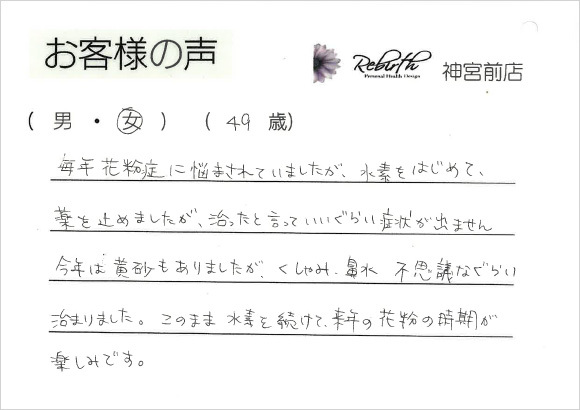 お客様の声
Rebirth
Personal Health Design
神宮前店
( 男 ・ 女 ) ( 49 歳)
毎年 花粉症に悩まされていましたが、水素をはじめて、
薬を止めましたが、治ったと言っていいぐらい症状が出ません
今年は黄砂もありましたが、くしゃみ、鼻水 不思議なぐらい
治まりました。このまま 水素を続けて、来年の花粉の時期が
楽しみです。